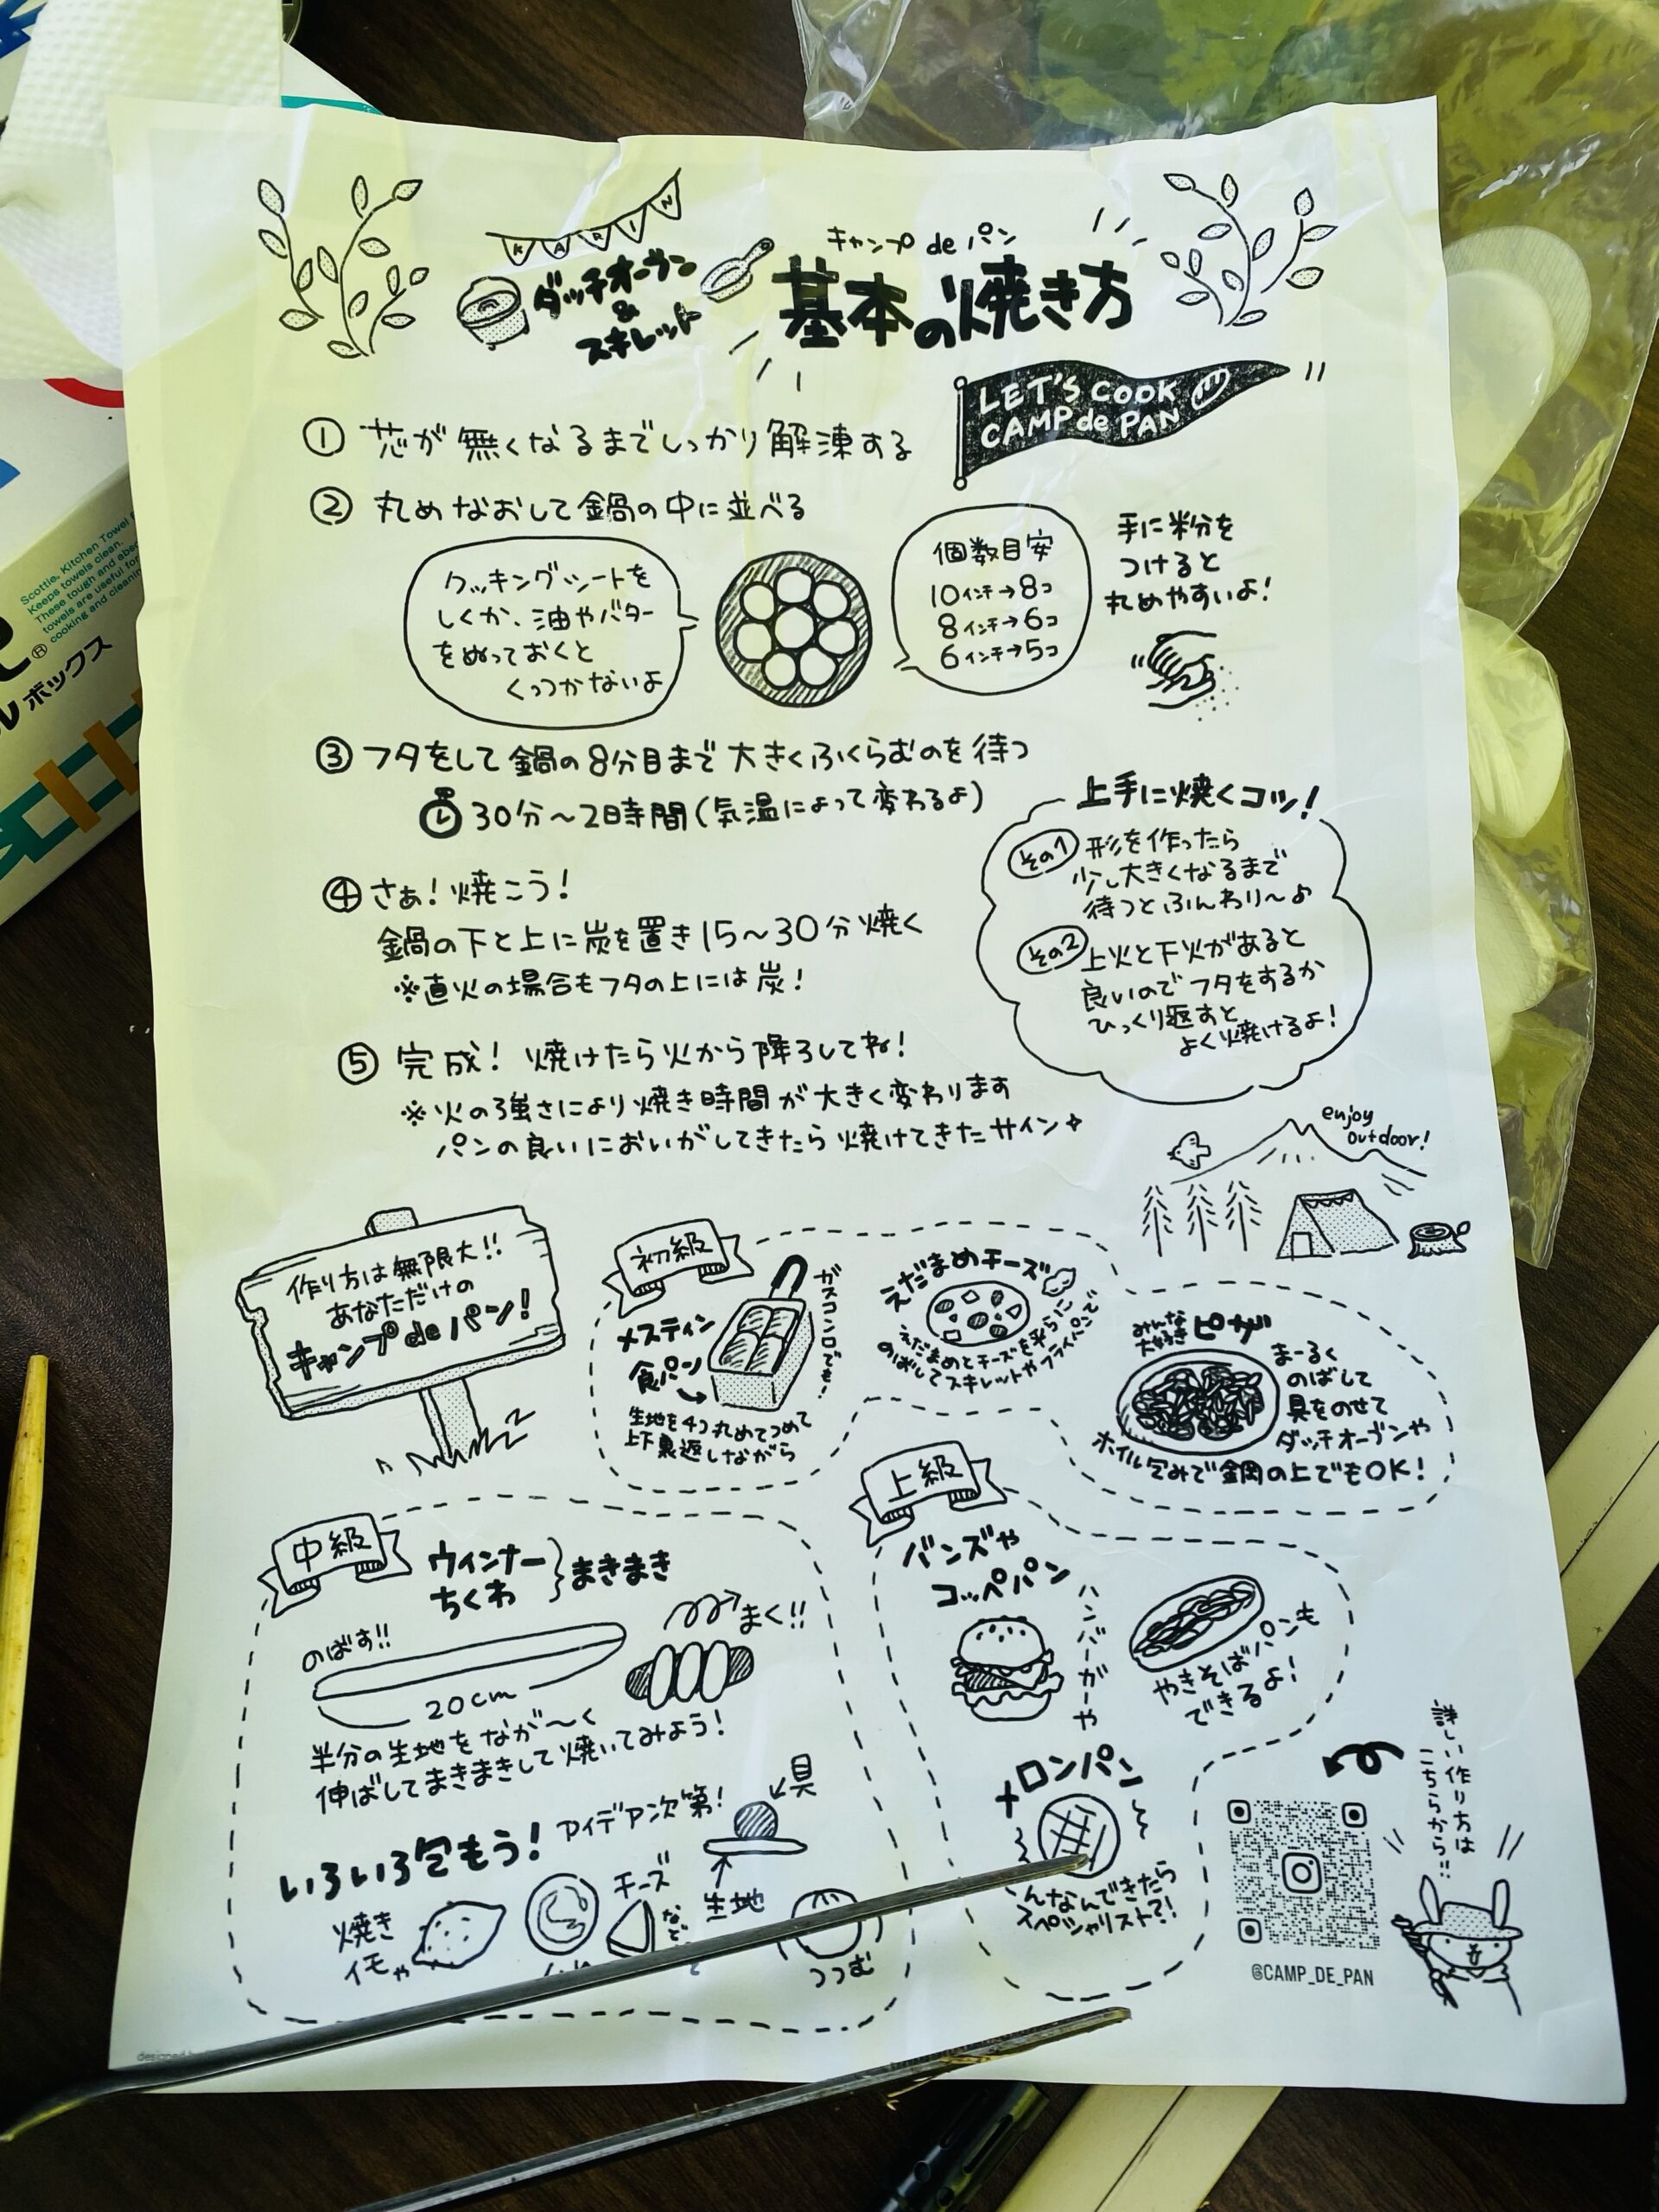 KARIN
ダッチオーブン
&
スキレット
キャンプ de パン
基本の焼き方
LET'S COOK
CAMP de PAN
① 芯が無くなるまでしっかり解凍する
② 丸めなおして鍋の中に並べる
クッキングシートを
しくか、油やバター
をぬっておくと
くっつかないよ
個数目安
10インチ→8コ
8インチ→6コ
6インチ→5コ
手に粉を
つけると
丸めやすいよ!
③ フタをして鍋の8分目まで大きくふくらむのを待つ
30分～2時間(気温によって変わるよ)
④ さぁ!焼こう!
鍋の下と上に炭を置き15～30分焼く
※直火の場合もフタの上には炭!
上手に焼くコツ!
その1 形を作ったら
少し大きくなるまで
待つとふんわり～♪
その2 上火と下火があると
良いのでフタをするか
ひっくり返すと
よく焼けるよ!
⑤ 完成! 焼けたら火から降ろしてね!
※火の強さにより焼き時間が大きく変わります
パンの良いにおいがしてきたら焼けてきたサイン
enjoy
outdoor!
作り方は無限大!!
あなただけの
キャンプ de パン!
初級
メスティン
食パン
ガスコンロでも!
生地を4コ丸めてつめて
上下裏返しながら
えだまめチーズ
えだまめとチーズを平らに
のばしてスキレットやフライパンで
みんな
大好き
ピザ
まーるく
のばして
具をのせて
ダッチオーブンや
ホイル包みで網の上でもOK!
中級
ウィンナー
ちくわ
まきまき
のばす!!
20cm
まく!!
半分の生地をなが～く
伸ばしてまきまきして焼いてみよう!
いろいろ包もう!
アイデア次第!
焼き
イモや
チーズ
など
具
生地
つつむ
上級
バンズや
コッペパン
ハンバーガーや
やきそばパンも
できるよ!
メロンパン
んなんできたら
スペシャリスト?!
詳しい作り方は
こちらから!!
@CAMP_DE_PAN
Scottie, Kitchen Towel
Keeps towels clean.
ボックス